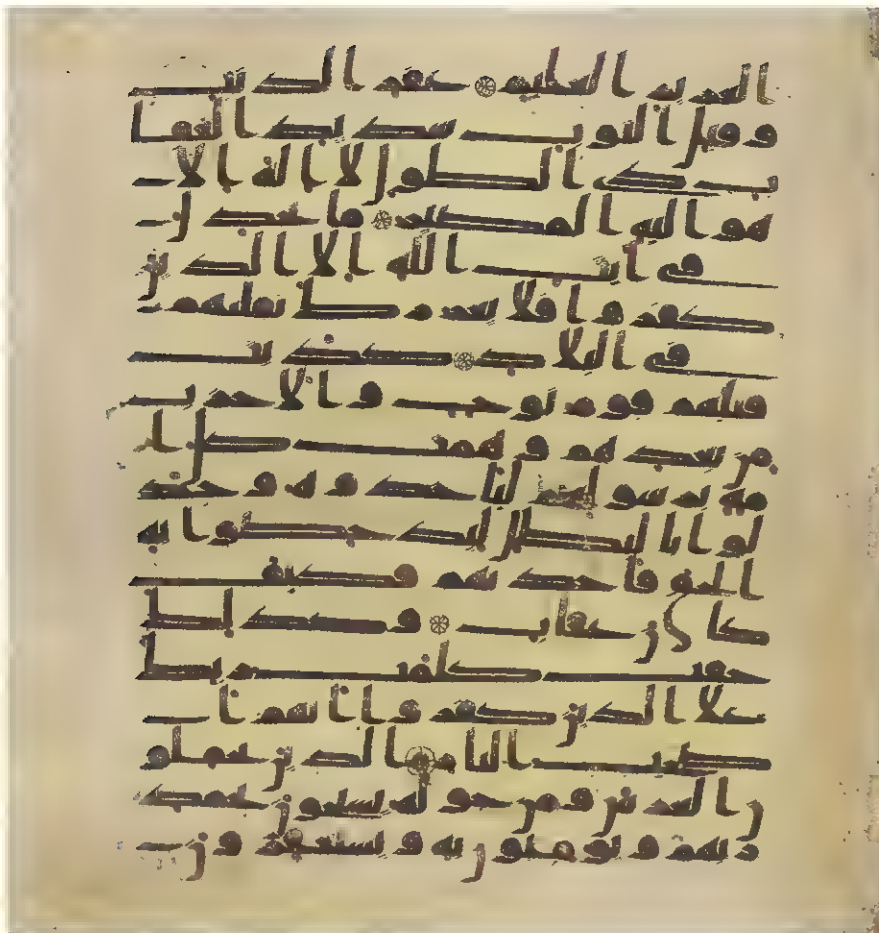 العزيز العليم ۝ غفر الذنب
وقبل التوب شديد العقا
ب ذي الطول لا اله الا
هو اليه المصير ۝ ما يجدل
في ايت الله الا الذين
كفروا فلا يغررك تقلبهم
في البلد ۝ كذبت
قبلهم قوم نوح والاحزاب
من بعدهم وهمت كل ا
مة برسولهم لياخذوه وجد
لوا بالبطل ليدحضوا به
الحق فاخذتهم فكيف
كان عقاب ۝ وكذلك
حقت كلمت ربك
على الذين كفروا انهم اصحب
النار ۝ الذين يحملو
ن العرش ومن حوله يسبحون بحمد
ربهم ويومنون به ويستغفرون